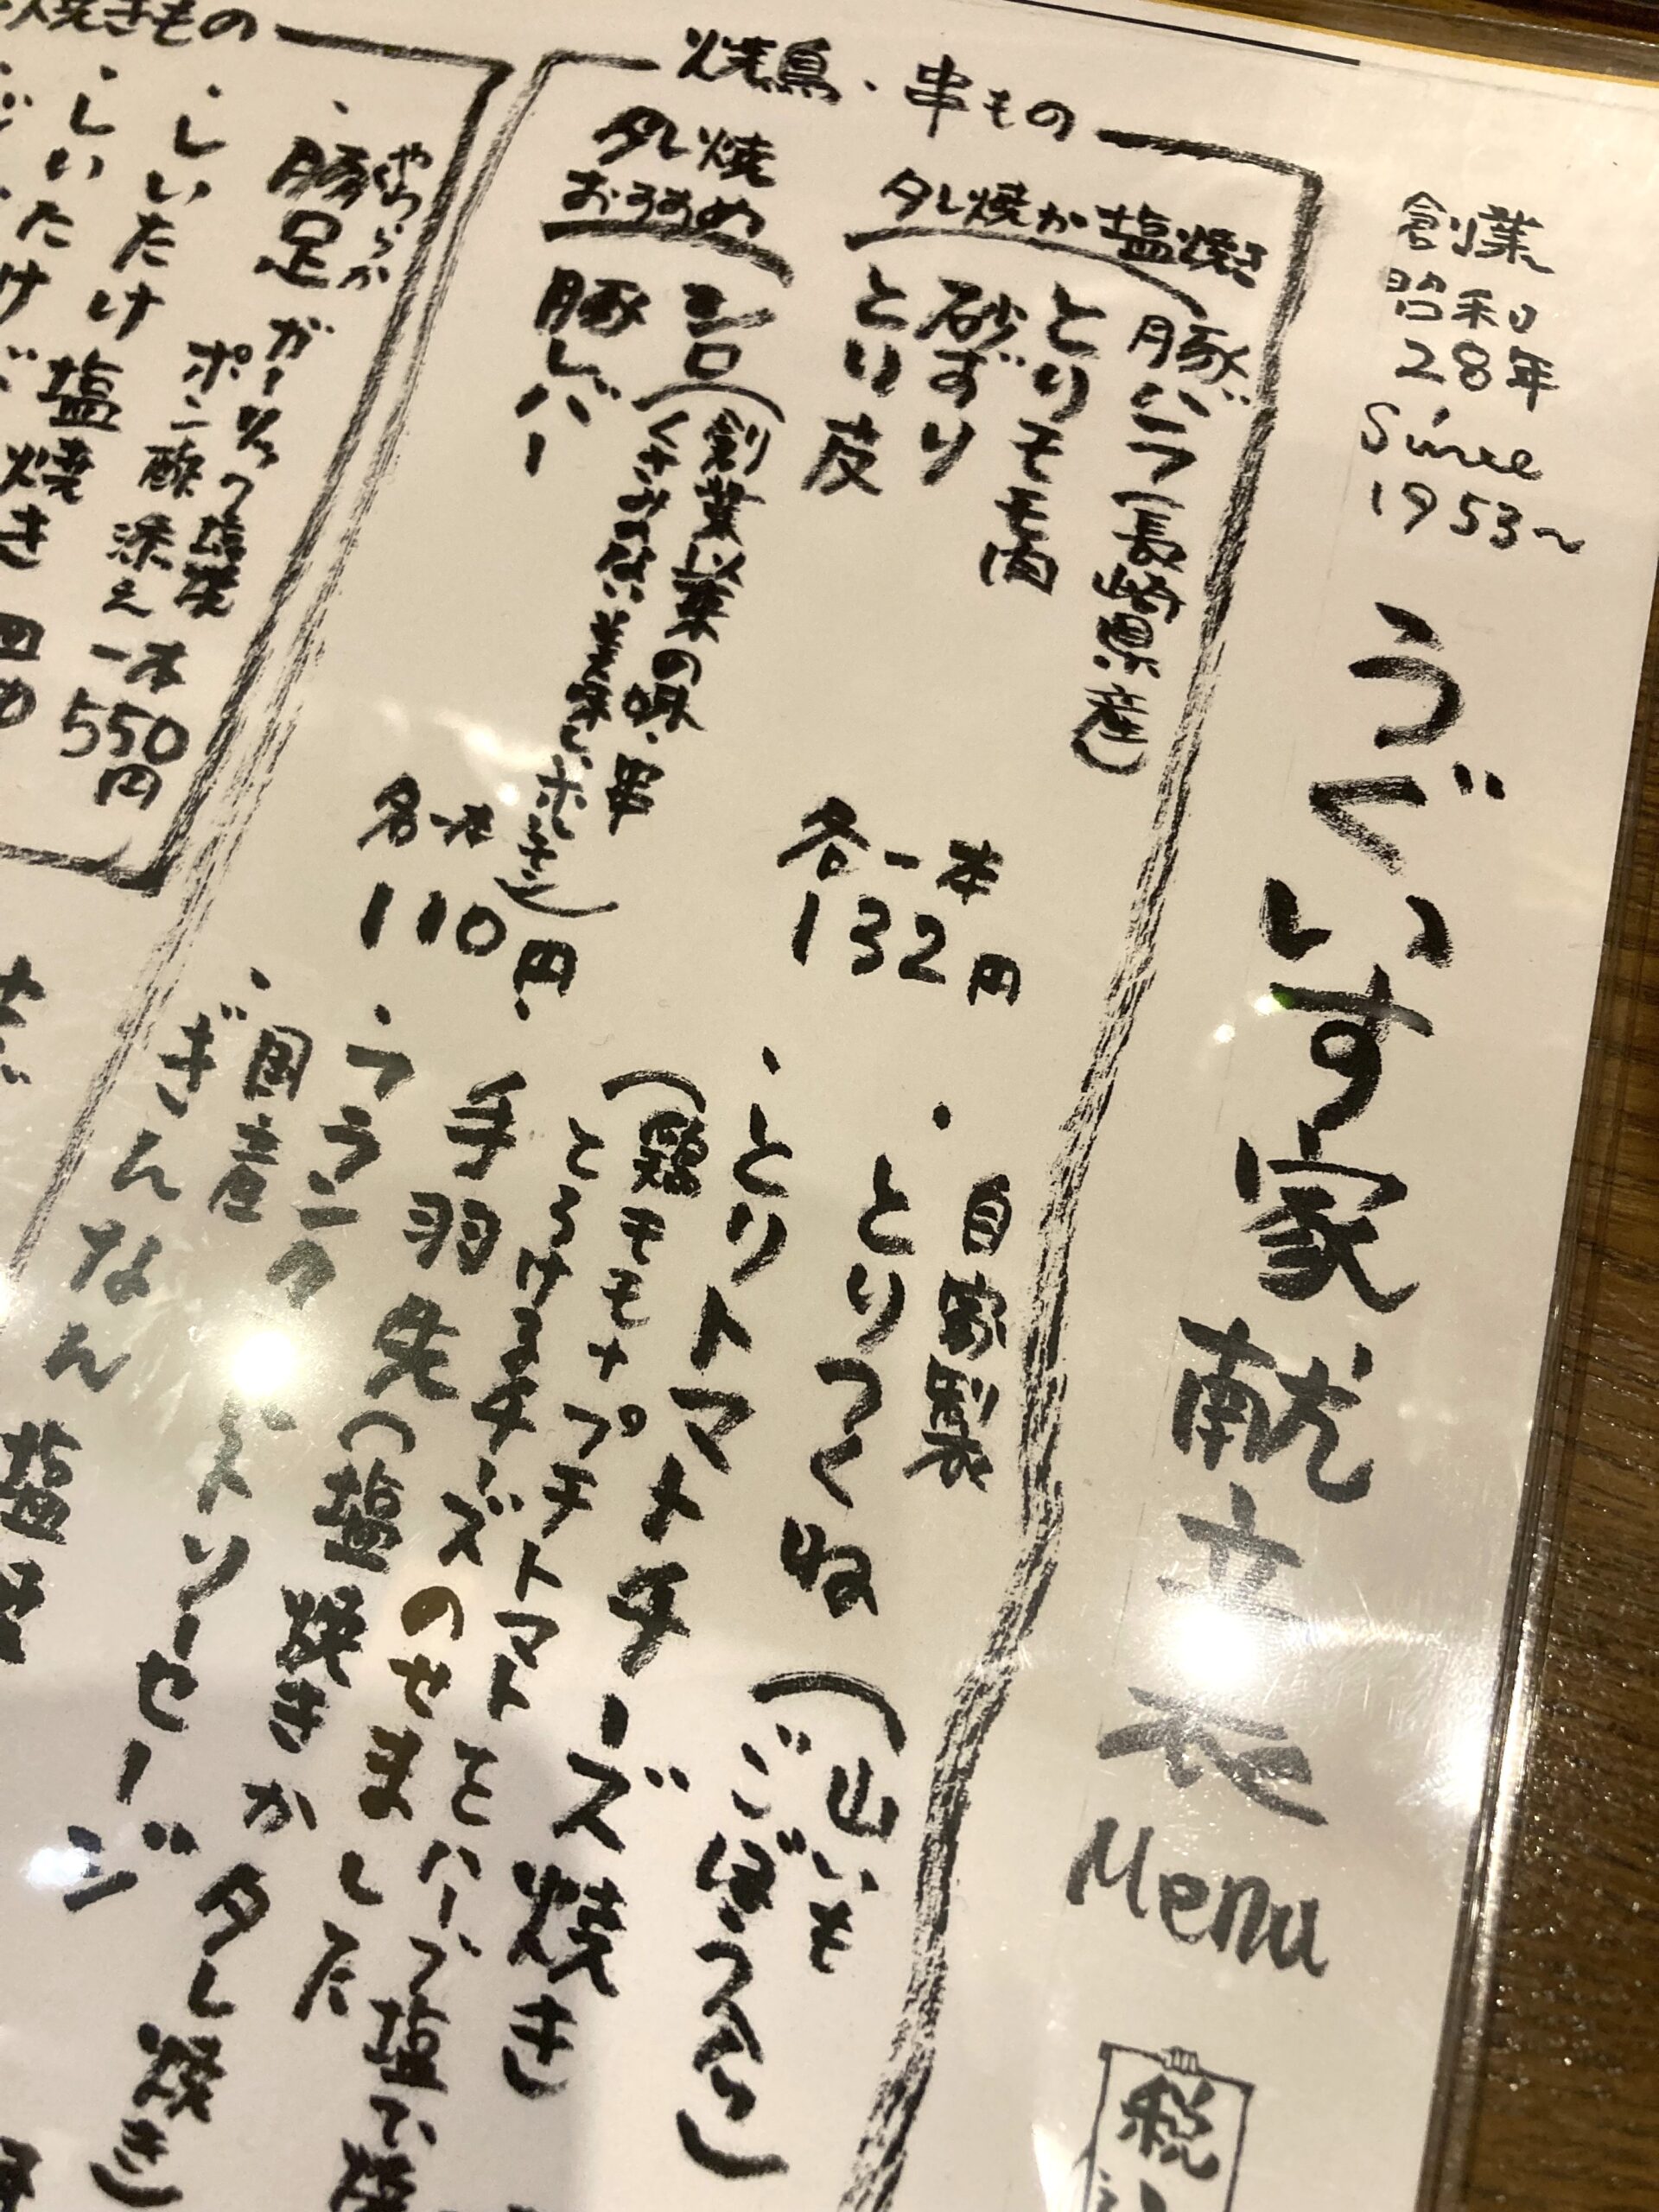 創業
昭和
28年
Since
1953~
うぐいす家献立表 Menu
税
焼鳥・串もの
タレ焼か塩焼き
豚バラ(長崎県産)
とりモモ肉
砂ずり
とり皮
各一本
132円
タレ焼
おすすめ
シロ(創業以来の味、串
くさみのない美味しいホルモン)
豚レバー
各一本
110円
・自家製
とりつくね(山いも
ごぼう入り)
・とりトマトチーズ焼き
(鶏モモ+プチトマトをハーブ塩で焼
とろけるチーズのせました
・手羽先(塩焼きかタレ焼き)
・フランクフルトソーセージ
・国産
ぎんなん 塩
焼きもの
・やわらか
豚足 ガーリック塩焼
ポン酢添え 一本
550円
・しいたけ
・しいたけ 塩焼き